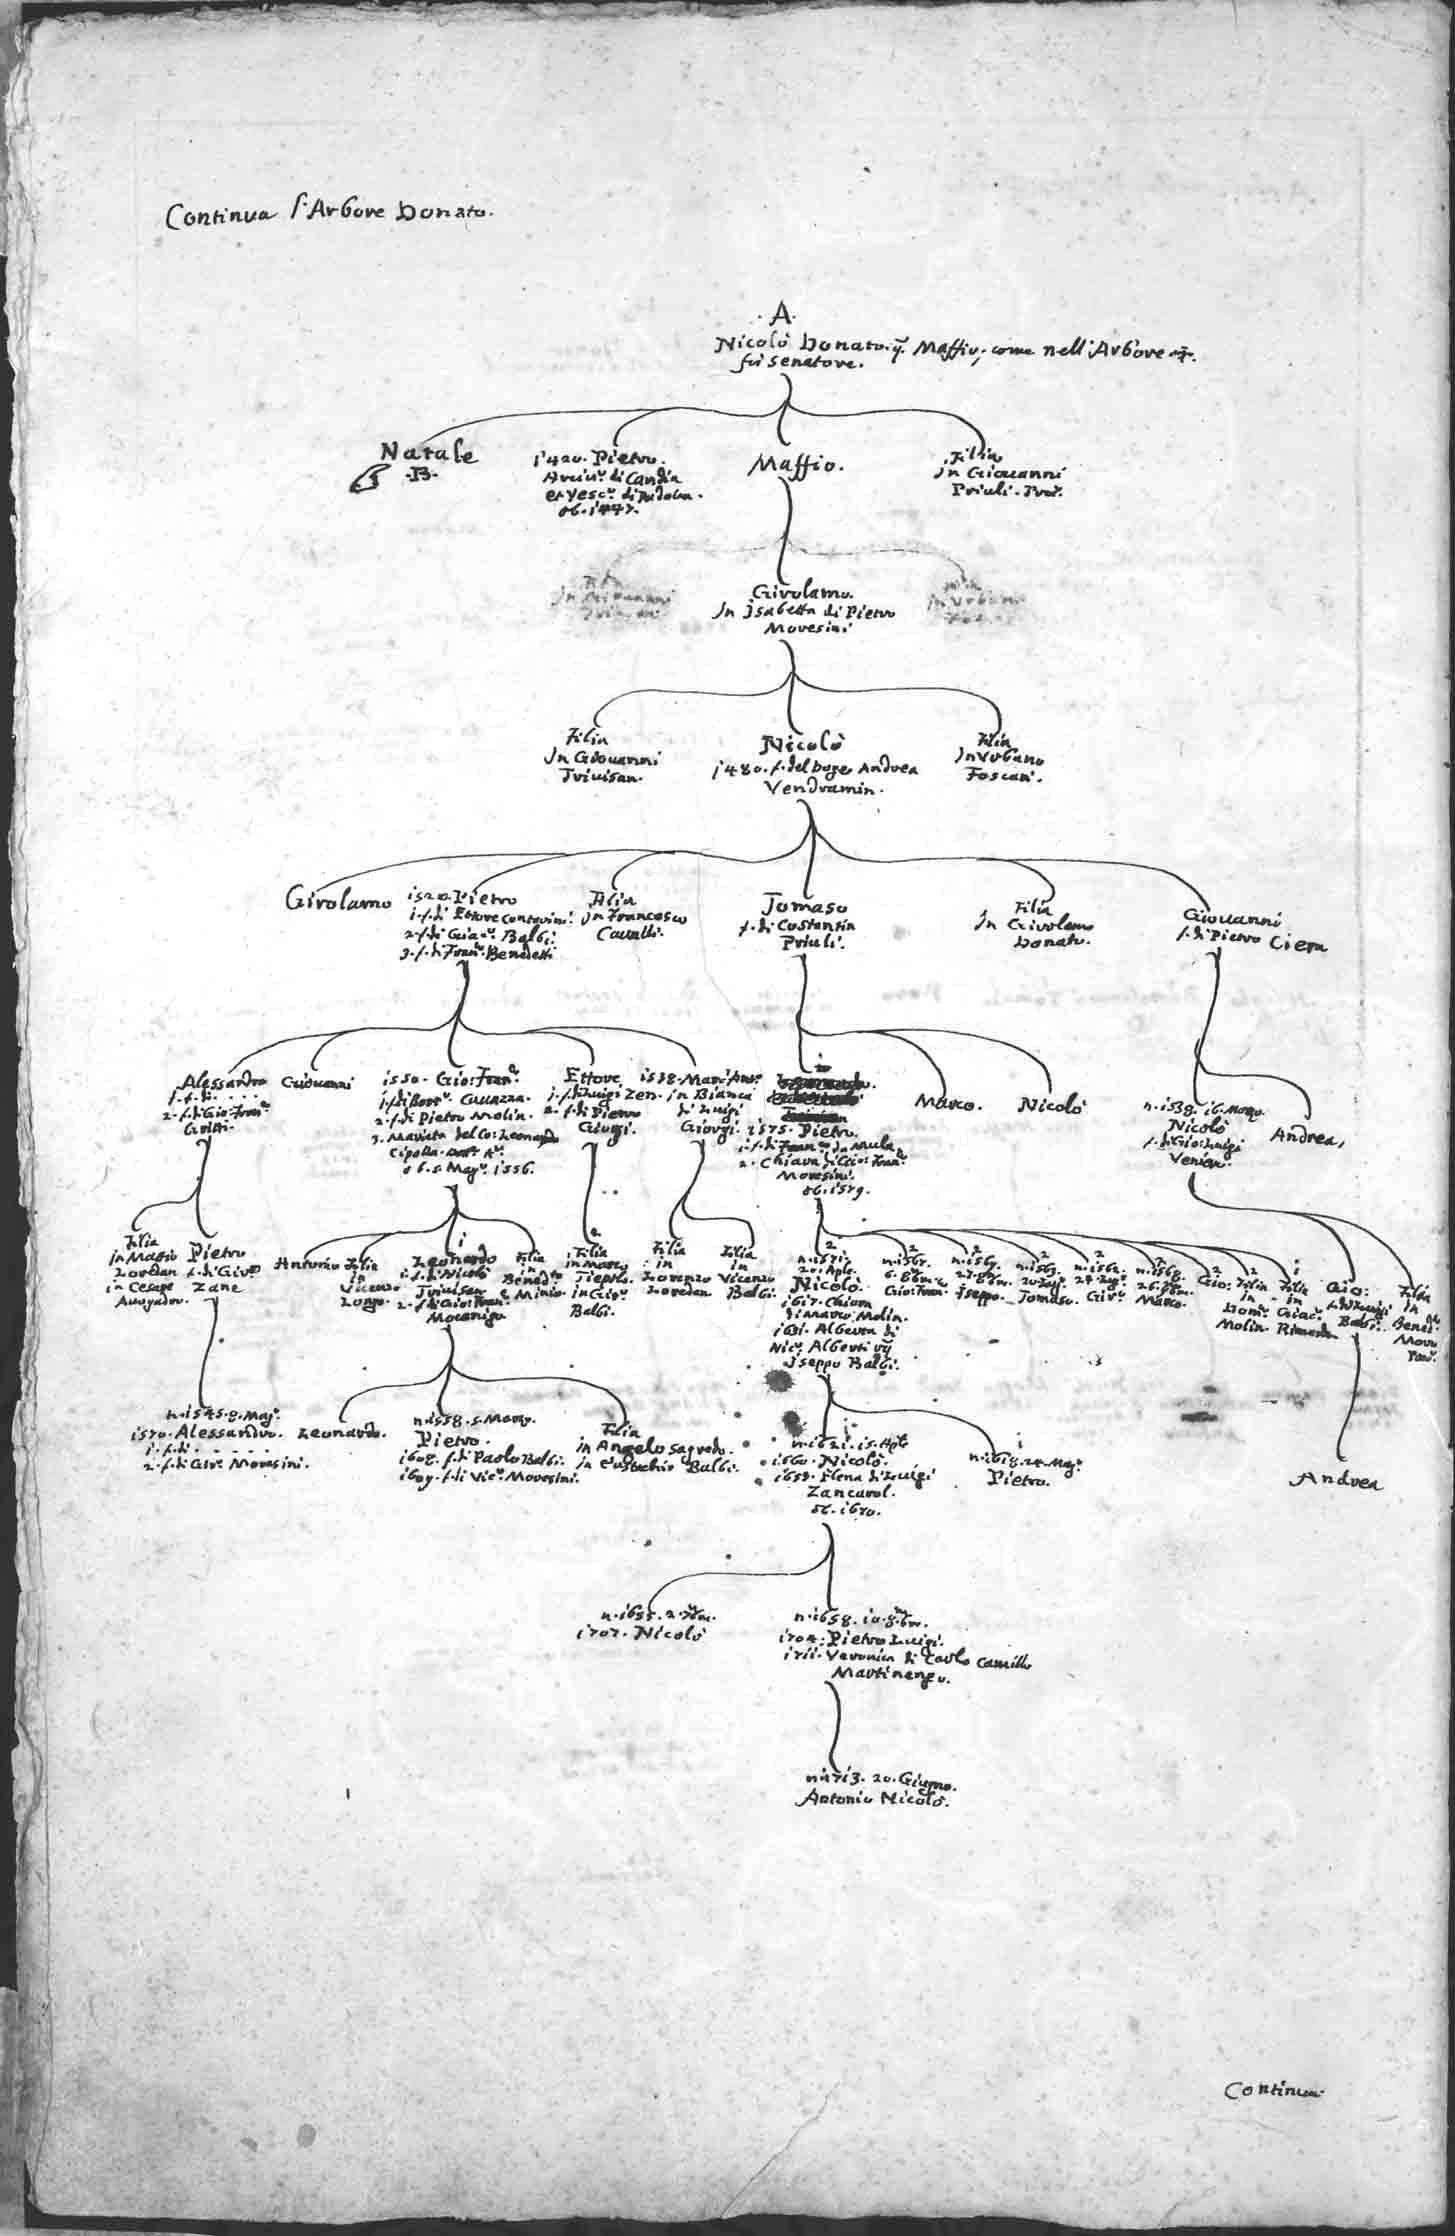 Continua l'Arbore Donato.
A
Nicolò Donato q. Maffio, come nell'Arbore
fù senatore.
Natale
B
1420. Pietro
Arciv.º di Candia
et Vesc.º di Padoa.
ob. 1447.
Maffio.
Filia
in Giovanni
Priuli. Proc.
Girolamo.
in Isabetta di Pietro
Moresini
Filia
in Giovanni
Trivisan.
Nicolò
1480. f. del Doge Andrea
Vendramin.
Filia
in Urbano
Foscari.
Girolamo
1520. Pietro
1. f. di Ettore Contarini.
2. f. di Giac.º Balbi.
3. f. di Fran.º Benedetti
Filia
in Francesco
Cavalli.
Tomaso
f. di Costantin
Priuli.
Filia
in Girolamo
Donato.
Giovanni
f. di Pietro Ciera
Alessandro
1. f. di . . . .
2. f. di Gio: Fran.º
Gritti.
Giovanni
1550. Gio: Fran.º
1. f. di Bort.º Cavazza.
2. f. di Pietro Molin.
3. Marieta del Co: Leonardo
Cipolla
ob. 5. Mag.º 1556.
Ettore
1. f. di Luigi Zen.
2. f. di Pietro
Giorgi.
1538. Marc'Ant.º
in Bianca
di Luigi
Giorgi.
1575. Pietro.
1. f. di Fran.º da Mula
2. Chiara di Gio: Fran.º
Moresini.
ob. 1579.
Marco.
Nicolò
n. 1538. 16. Marzo.
Nicolò
f. di Gio: Luigi
Venier.
Andrea,
Filia
in Maffio
Loredan
in Cesare
Avogadro.
Pietro
f. di Gir.º
Zane
Antonio
Filia
in
Vicenzo
Longo.
1
Leonardo
1. f. di Nicolò
Trivisan
2. f. di Gio: Fran.º
Mocenigo
Filia
in
Bened.to
Minio.
Filia
in Marco
Tiepolo.
in Gir.º
Balbi.
Filia
in
Lorenzo
Loredan
Filia
in
Vicenzo
Balbi.
2
n. 1571.
20. Aple.
Nicolò.
1617. Chiara
di Marco Molin.
1631. Alberta di
Nic.º Alberti
Iseppo Balbi.
2
Gio: Fran.
2
Iseppo.
2
Tomaso.
2
Gir.º
2
Marco.
2
Gio:
2
Filia
in
Dom.º
Molin.
1
Filia
in
Giac.º
Gio:
f. di Luigi
Balbi.
Filia
in
Bened.
n. 1545. 9. Mag.º
1570. Alessandro.
1. f. di . . . . . .
2. f. di Gir.º Moresini.
Leonardo.
n. 1558. 5. Marzo.
Pietro.
1608. f. di Paolo Balbi.
1609. f. di Vic.º Moresini.
Filia
in Angelo Sagredo.
in Eustachio Balbi.
n. 1621. 15. Aple
Nicolò.
1653. Elena di Luigi
Zancarol.
ob. 1670.
n. 1618. 24. Mag.º
Pietro.
Andrea
n. 1655. 2. 7bre.
1707. Nicolò
n. 1658. 10. 8bre.
1704. Pietro Luigi.
1711. Veronica di Carlo Camillo
Martinengo.
n. 1713. 20. Giugno.
Antonio Nicolò.
Continua